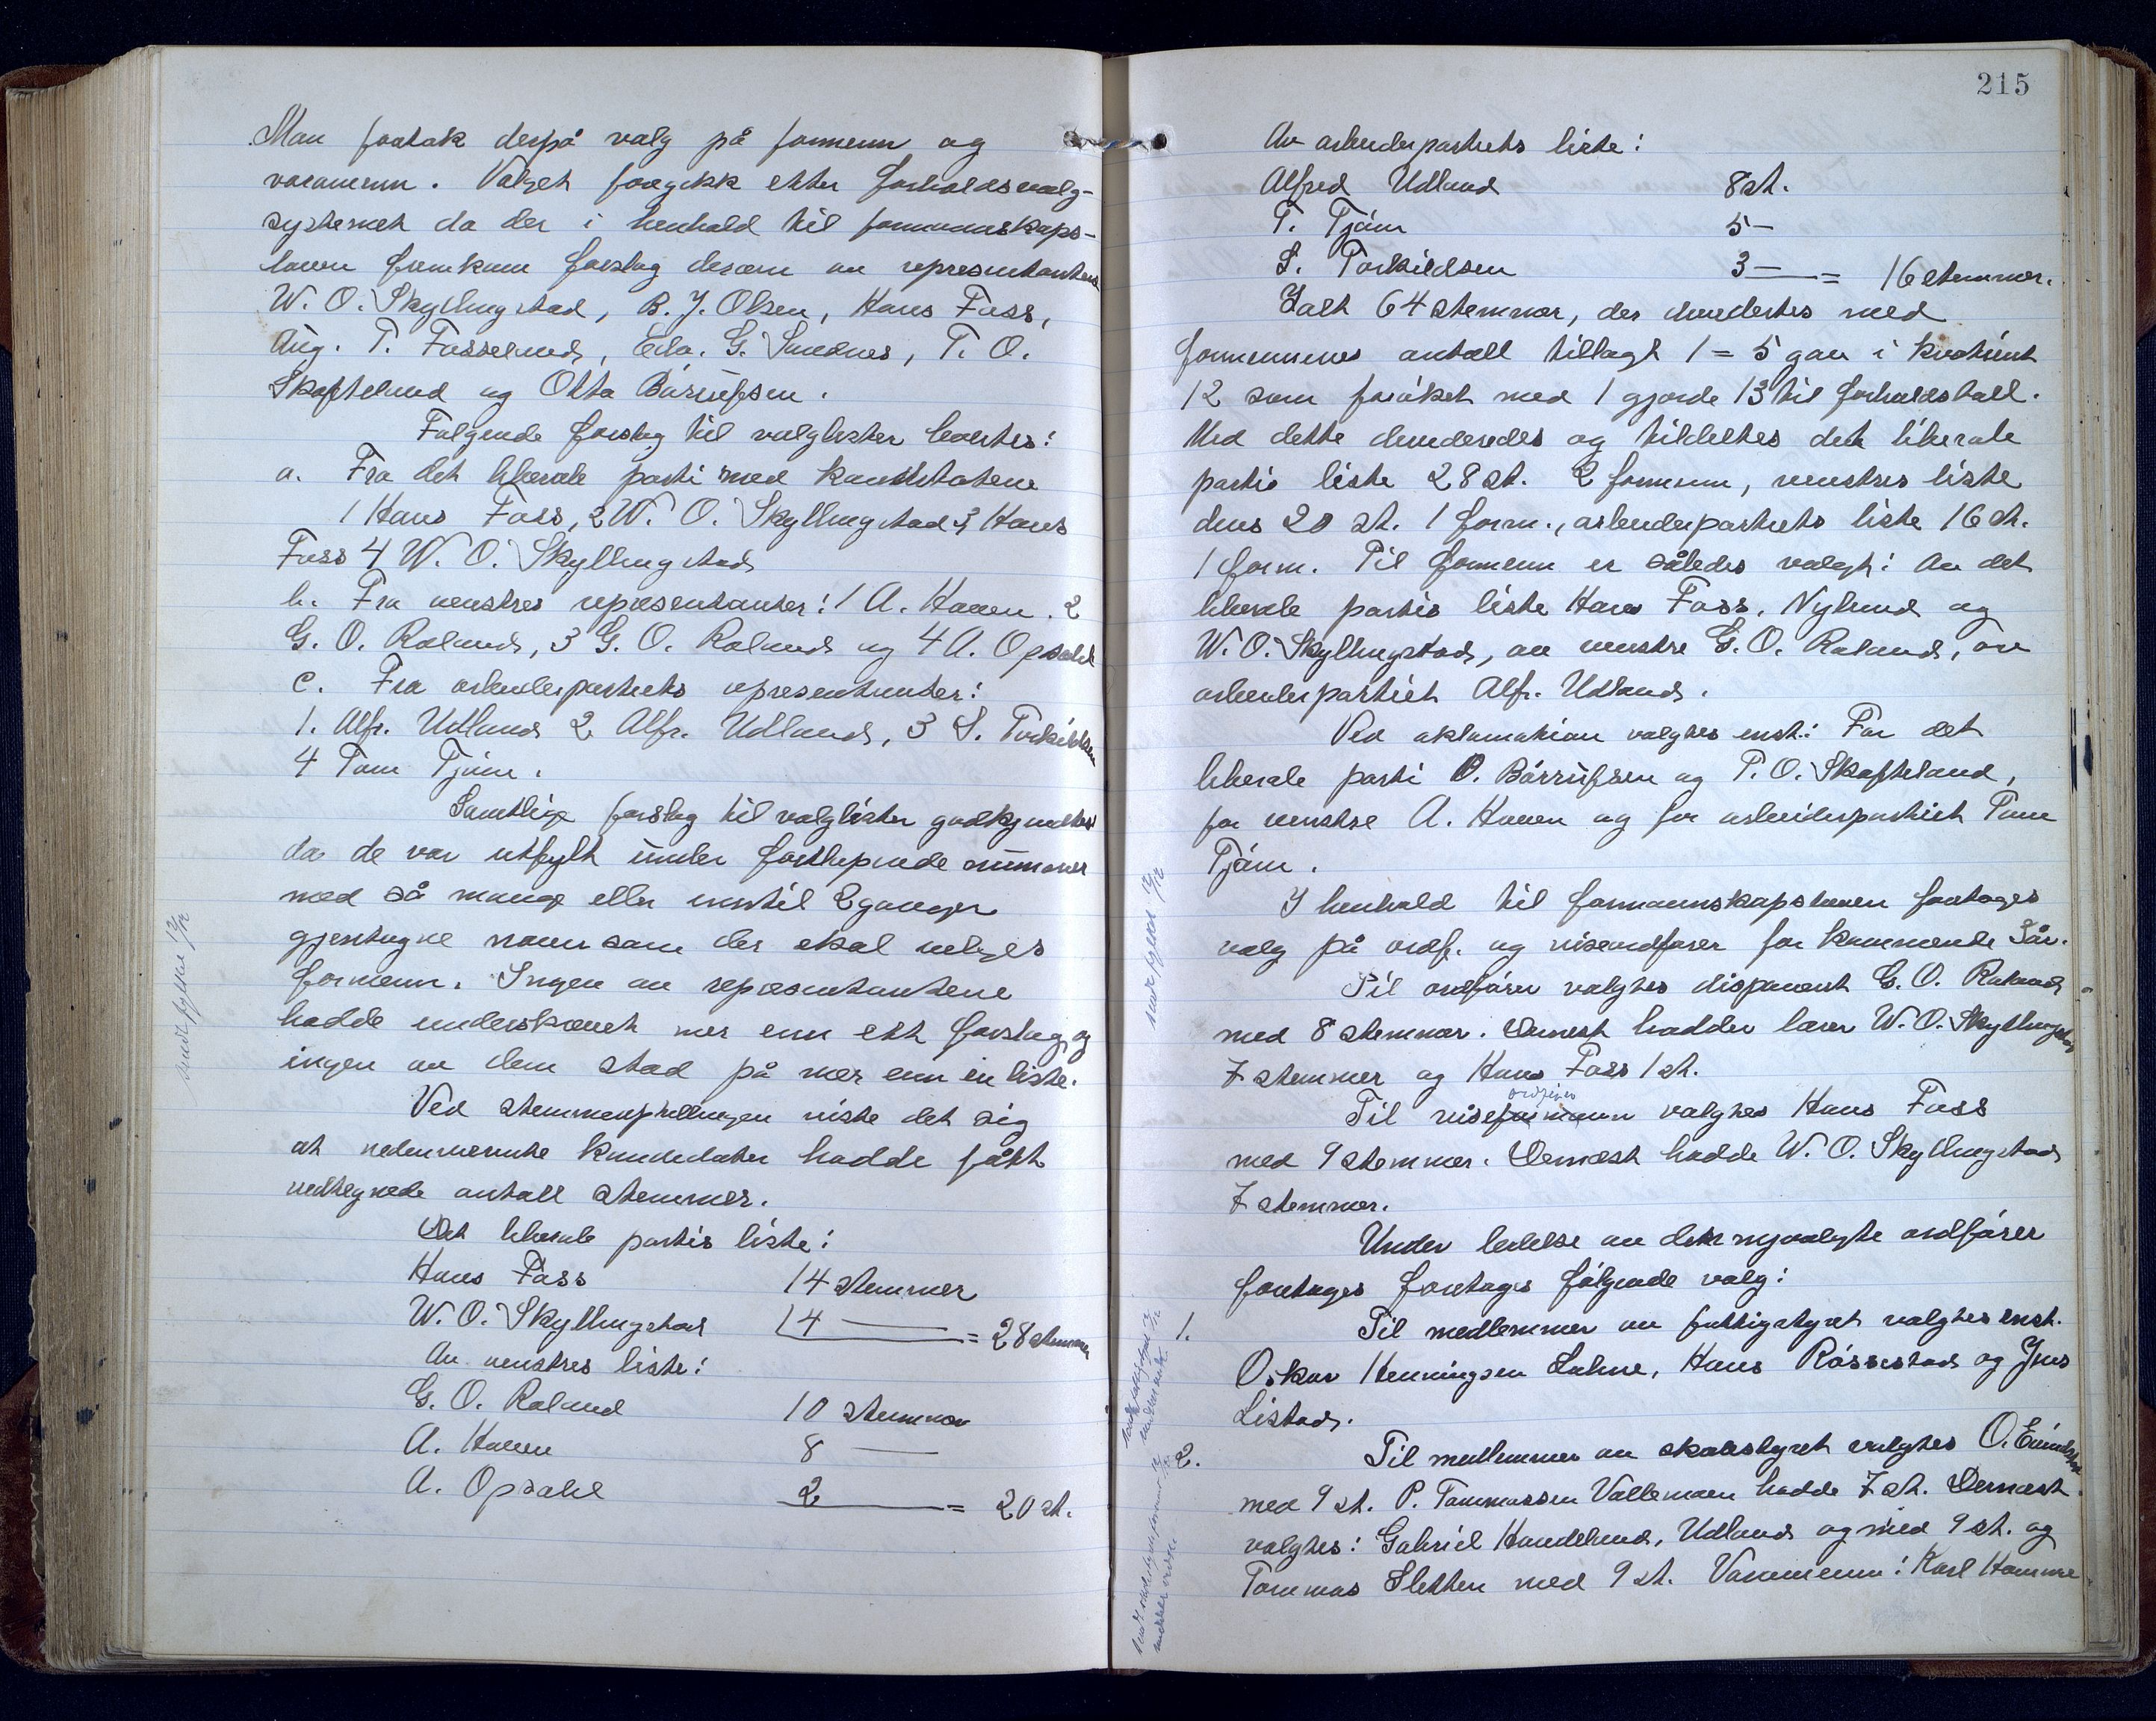 Man foretok derpå valg på formenn og
varamenn. Valget foregikk etter forholdsvalg-
systemet da der i henhold til formannskaps-
loven fremkom forslag derom av representantene
W. O. Skyllingstad, B. J. Olsen, Hans Foss,
Aug. T. Fosselund, Edv. G. Sundnes, T. O.
Skofteland og Otto Bårufsen.
Følgende forslag til valglister levertes:
a. Fra det liberale parti med kandidatene
1 Hans Foss, 2 W. O. Skyllingstad 3 Hans
Foss 4 W. O. Skyllingstad
b. Fra venstres representanter: 1 A. Haven. 2
G. O. Røland, 3 G. O. Røland og 4 A. Opsahl
c. Fra arbeiderpartiets representanter:
1. Alfr. Udland 2 Alfr. Udland, 3 S. Torkildsen
4 Tom Tjøm.
Samtlige forslag til valglister godkjendtes
da de var utfylt under fortløpende nummer
med så mange eller inntil 2 ganger
gjentagne navn som der skal velges
formenn. Ingen av representantene
hadde underskrevet mer enn ett forslag, og
ingen av dem stod på mer enn en liste.
Ved stemmeoptellingen viste det sig
at nedennevnte kandidater hadde fått
vedtegnede antall stemmer.
Det liberale partis liste:
Hans Foss 14 stemmer
W. O. Skyllingstad 14 — = 28 stemmer
Av venstres liste:
G. O. Røland 10 stemmer
A. Haven 8 —
A. Opsahl 2 — = 20 st.
sendt fylket 12/12
215
Av arbeiderpartiets liste:
Alfred Udland 8 st.
T. Tjøm 5 —
S. Torkildsen 3 — = 16 stemmer.
Ialt 64 stemmer, der divideres med
formennenes antall tillagt 1 = 5 gav i kvotient
12 som forøket med 1 gjorde 13 til forholdstall.
Med dette divideredes og tildeltes det liberale
partis liste 28 st. 2 formenn, venstres liste
dens 20 st. 1 form., arbeiderpartiets liste 16 st.
1 form. Til formenn er således valgt: Av det
liberale partis liste Hans Foss, Nylund og
W. O. Skyllingstad, av venstre G. O. Røland, av
arbeiderpartiet Alfr. Udland.
Ved aklamation valgtes enst: For det
liberale parti O. Bårrufsen og T. O. Skofteland,
for venstre A. Haven og for arbeiderpartiet Tom
Tjøm.
I henhold til formannskapsloven foretoges
valg på ordf. og viseordfører for kommende år.
Til ordfører valgtes disponent G. O. Røland
med 8 stemmer. Dernest hadde lærer W. O. Skyllingstad
7 stemmer og Hans Foss 1 st.
ordfører
Til viseformann valgtes Hans Foss
med 9 stemmer. Dernæst hadde W. O. Skyllingstad
7 stemmer.
Under ledelse av den nyvalgte ordfører
foretoges foretoges følgende valg:
1. Til medlemmer av fattigstyret valgtes enst.
Oskar Henningsen Lohne, Hans Røssestad og Jens
Listad.
2. Til medlemmer av skolestyret valgtes O. Eivindstad
med 9 st. P. Tommassen Vallemoen hadde 7 st. Dernæst
valgtes: Gabriel Handeland, Udland og med 9 st. og
Tommas Sletten med 9 st. Varamenn: Karl Homme
sendt fylket 12/12